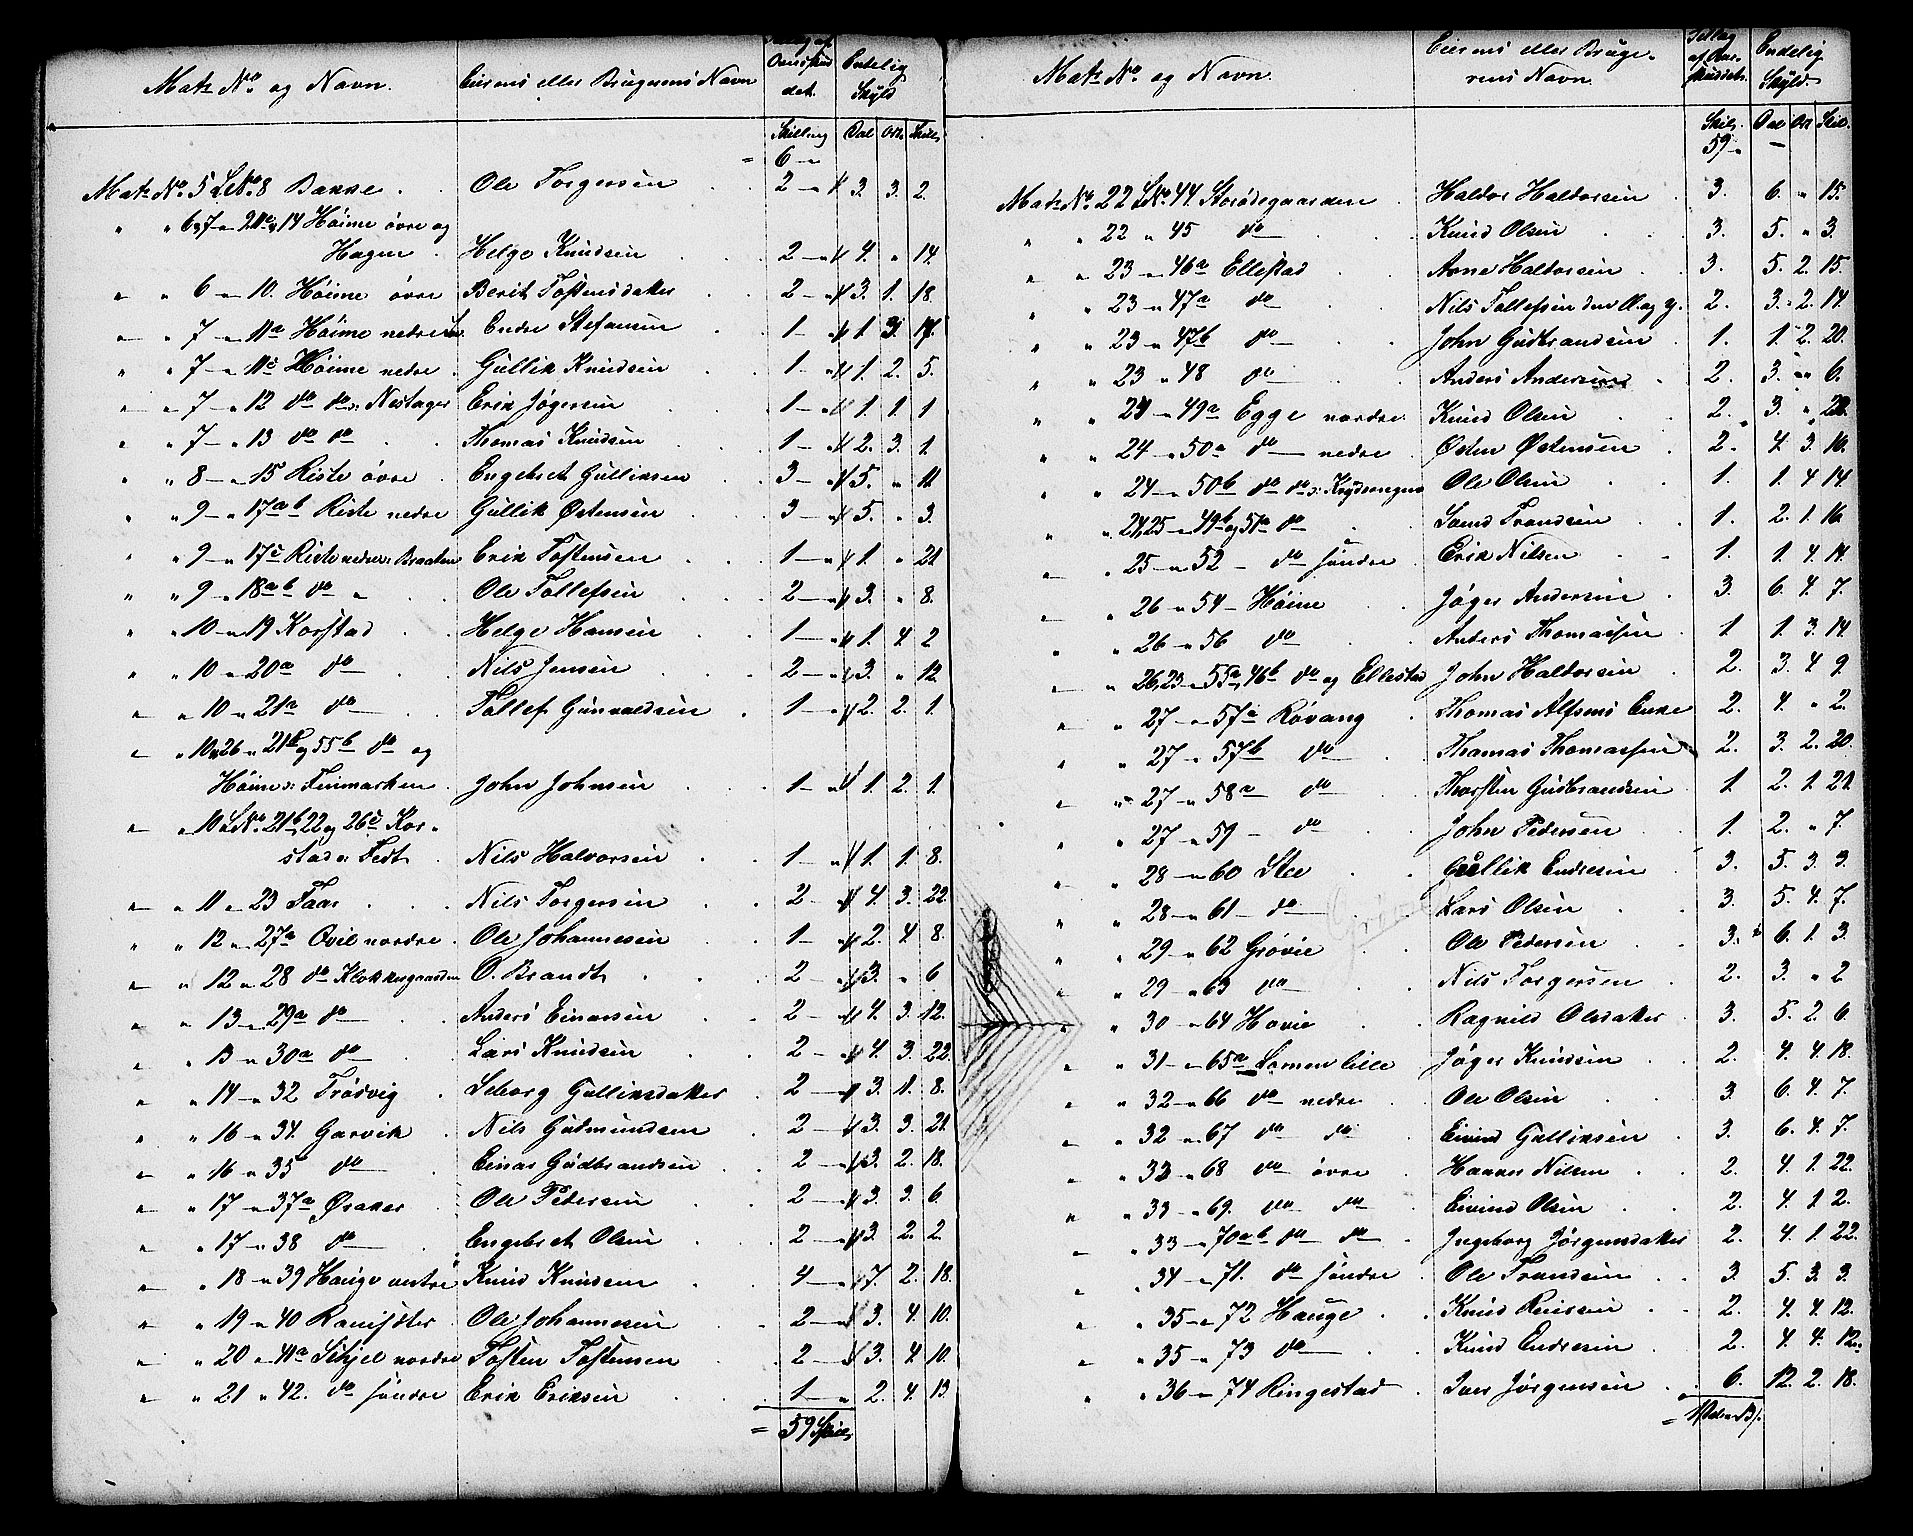 Matr No og Navn. Eierens eller Brugerens Navn det. Endelig Skyld
Skilling Dal Ort Skill
= 6 "
Matr No 5 L No 8 Bakke Ole Torgersen 2 3. 3. 2.
" " 6,7 " 11 14 Höime övre og
Hagen Helge Knudsen 2 4. " 14.
" " 6 " 10. Höime övre Berit Tostensdatter 2 3. 1. 18.
" " 7 " 11a Höime nedre Endre Stefansen 1 1. 3. 17.
" " 7 " 11c Höime nedre Gullik Knudsen 1 1. 2. 5.
" " 7 " 12 do do Nestager Erik Jögersen 1 1. 1. 1
" " 7 " 13 do do Thomas Knudsen 1 2. 3. 1.
" " 8 " 15 Riste övre Engebret Gulliksen 3 5. " 11
" " 9 " 17ab Riste nedre Gullik Østensen 3 5. " 3.
" " 9 " 17c Riste nedre Braaten Erik Tostensen 1 1. " 21
" " 9 " 18ab do " Ole Tollefsen 2 3. " 8.
" " 10 " 19 Korstad Helge Hansen 1 1. 4. 2
" " 10 " 20a do Nils Jensen 2 3. " 12.
" " 10 " 21a do Tollef Gunvaldsen 1 2. 2. 1.
" " 10,26 " 21 og 55b do og
Höime Finmarken John Johnsen 1 1. 2. 1.
" " 10 L No 21b, 22 og 26c Kor-
stad Fedt Nils Halvorsen 1 1. 1. 8.
" " 11 " 23 Faar Nils Torgersen 2 4. 3. 22.
" " 12 " 27a Qvil nordre Ole Johannesen 1 2. 4. 8.
" " 12 " 28 do Klokkergaarden O. Brandt 2 3. " 6
" " 13 " 29a do Anders Einarsen 2 4. 3. 12.
" " 13 " 30a do Lars Knudsen 2 4. 3. 22.
" " 14 " 32 Trödvig Seborg Gulliksdatter 2 3. 1. 8.
" " 16 " 34. Garvik Nils Gudmundsen 2 3. 3. 21.
" " 16 " 35 do Einar Gudbrandsen 2 3. 2. 18.
" " 17 " 37a Øraker Ole Pedersen 2 3. 3. 6
" " 17 " 38 do Engebret Olsen 2 3. 2. 2
" " 18 " 39 Hauge Knud Knudsen 4 7. 2. 18.
" " 19 " 40 Ole Johannesen 2 3. 4. 10.
" " 20 " 41a nordre Tosten Tostensen 2 3. 4. 10.
" " 21 " 42. do söndre Erik Eriksen 1 2. 4. 13.
= 59 Skill
Matr No og Navn. Eierens eller Bruge- Tillag Endelig
rens Navn. af Skyld.
Skil. Dal Ort Skil.
59 "
Matr No 22 L No 44 Storödegaarden Haldor Haldorsen 3. 6. " 15.
" " 22 " 45 do Knud Olsen 3. 5. " 3.
" " 23 " 46a Ellestad Arne Haldorsen 3. 5. 2. 15.
" " 23 " 47a do Nils Tollefsen den 2. 3. 2. 14
" " 23 " 47b do John Gudbrandsen 1. 1. 2. 20.
" " 23 " 48 do Anders Andersen 2. 3. " 6.
" " 24 " 49a Egge nordre Knud Olsen 2. 3. "
" " 24 " 50a do nedre Østen Østensen 2. 4. 3. 10.
" " 24 " 50b do do Ole Olsen 1. 1. 4 14
" " 24,25 " 49b og 51a do Trondsen 1. 2. 1. 16
" " 25 " 52 do söndre Erik Nilsen 1. 1. 4. 14.
" " 26 " 54 Höine Jöger Andersen 3. 6. 4. 7.
" " 26 " 56 do Anders Thomassen 1 1. 3. 14.
" " 26,23 " 55a, 46b do og Ellestad John Haldorsen 2. 3. 4. 9.
" " 27 " 57a Rövang Thomas Alfsens Enke 2. 4. " 2.
" " 27 " 57b do Thomas Thomassen 2. 3. 2. 20.
" " 27 " 58a do Thorsten Gudbrandsen 1. 2. 1. 21
" " 27 " 59 do John Pedersen 1. 2. " 7.
" " 28 " 60 Stee Gullik Endresen 3. 5. 3. 3.
" " 28 " 61 do Lars Olsen 3. 5. 4. 7.
" " 29 " 62 Grövie Ole Pedersen 3. 6. 1. 3.
" " 29 " 63 do Nils Torgersen 2. 3. " 2
" " 30 " 64 Hovie Ragnild Olsdatter 3. 5. 2. 6.
" " 31 " 65a Lomen lille Jöger Knudsen 2. 4. 4. 18.
" " 32 " 66 do nedre Ole Olsen 3. 6. 4. 7.
" " 32 " 67 do do Eivind Gulliksen 3. 6. 4. 7.
" " 33 " 68 do övre Nilsen 2. 4. 1. 22.
" " 33 " 69. do do Eivind Olsen 2. 4. 1. 2.
" " 33 " 70ab do do Ingeborg Jörgensdatter 2. 4. 1. 22.
" " 34 " 71. do söndre Ole Trondsen 3. 5. 3. 3.
" " 35 " 72 Hauge Knud 2. 4. 4. 12.
" " 35 " 73 do Knud Endresen 2. 4. 4. 12.
" " 36 " 74 Ringestad Iver Jörgensen 6. 12. 2. 18.